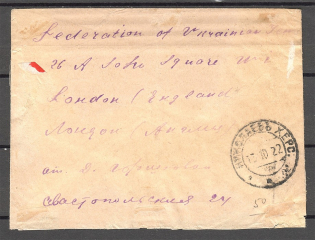 Federation of Ukrainian
26 A Soho Square W.1
London (England)
Лондон (Англия)
от
Севастопольская 24
НИКОЛАЕВЪ ХЕРС.
10 22
50